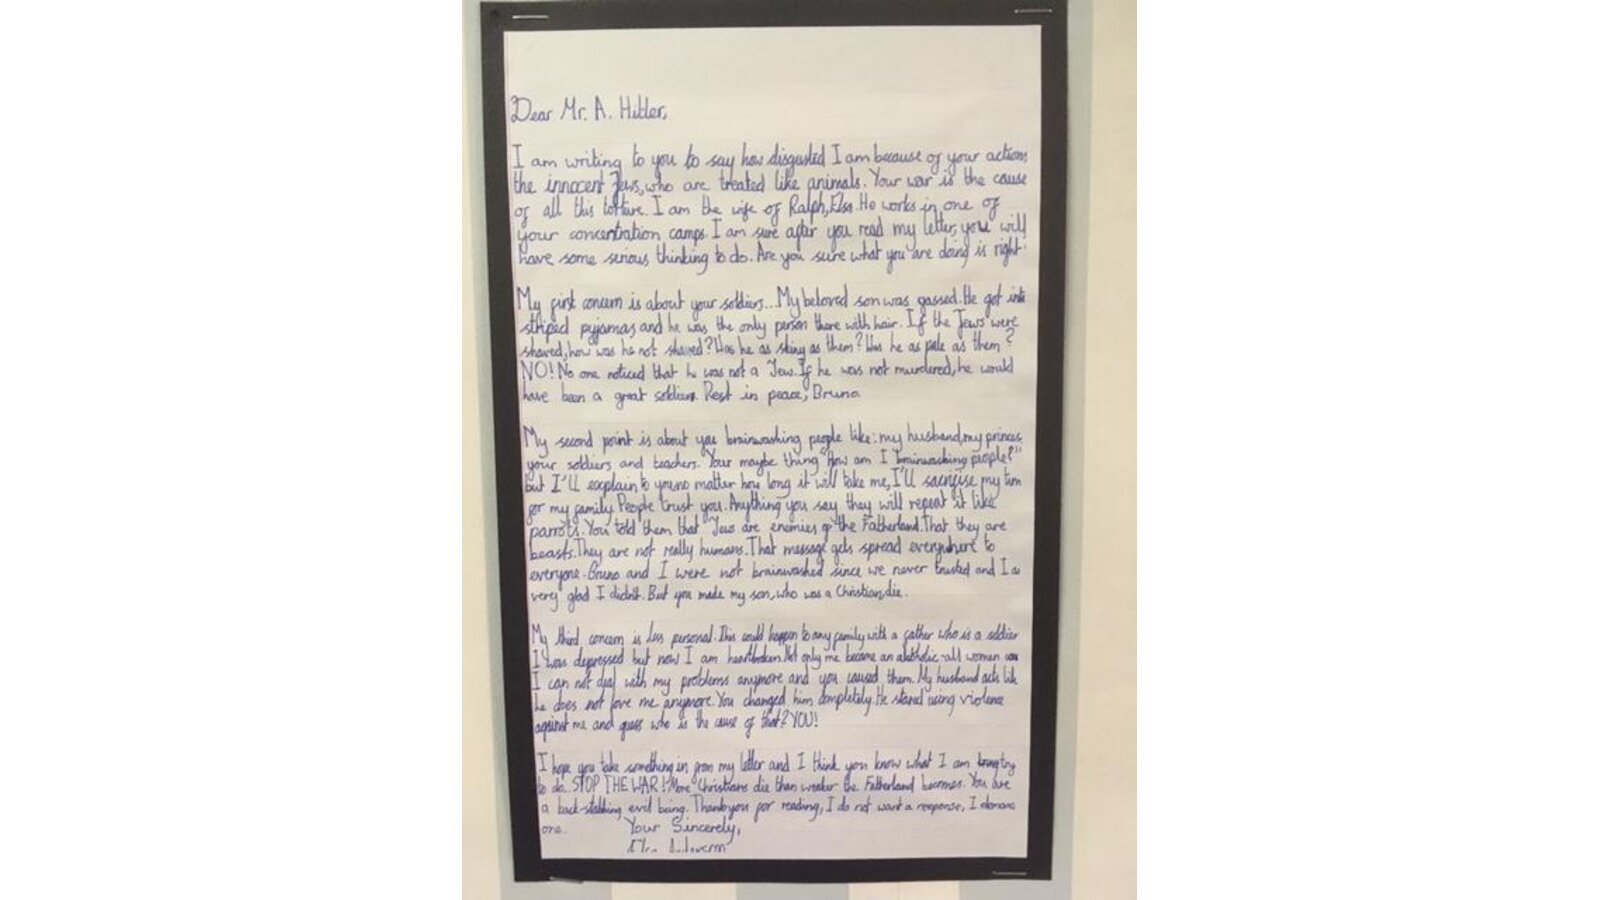 Dear Mr. A. Hitler,
I am writing to you to say how disgusted I am because of your actions
the innocent Jews, who are treated like animals. Your war is the cause
of all this torture. I am the wife of Ralph, Elsa. He works in one of
your concentration camps. I am sure after you read my letter, you will
have some serious thinking to do. Are you sure what you are doing is right?
My first concern is about your soldiers... My beloved son was gassed. He got into
striped pyjamas, and he was the only person there with hair. If the Jews were
shaved, how was he not shaved? Was he as skiny as them? Was he as pale as them?
NO! No one noticed that he was not a Jew. If he was not murdered, he would
have been a great soldier. Rest in peace, Bruno
My second point is about you brainwashing people like: my husband, my princess,
your soldiers and teachers. Your maybe thing "How am I brainwashing people?"
but I'LL explain to you no matter how long it will take me, I'LL sacrifise my turn
for my family. People trust you. Anything you say they will repeat it like
parrots. You told them that Jews are enemies of the Fatherland. That they are
beasts. They are not really humans. That message gets spread everywhere to
everyone. Bruno and I were not brainwashed since we never trusted and I a
very glad I didn't. But you made my son, who was a Christian, die.
My third concern is less personal. This could happen to any family with a father who is a soldier
I was depressed but now I am heartbroken. Not only me became an alcoholic-all women
I can not deal with my problems anymore and you caused them. My husband acts like
he does not love me anymore. You changed him completely. He stared using violence
against me and guess who is the cause of that? YOU!
I hope you take something in from my letter and I think you know what I am try
to do... STOP THE WAR! More Christians die than weaker the Fatherland becomes. You are
a back-stabbing evil being. Thankyou for reading, I do not want a response, I
one.
Your Sincerely,